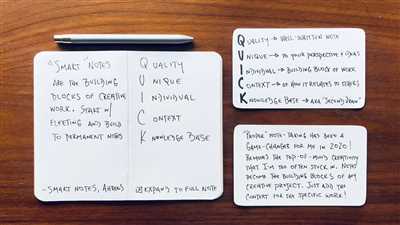 "Smart" Notes
are the building
blocks of creative
work. Start w/
fleeting and build
to permanent notes
- Smart Notes, Ahrens
Quality
Unique
Individual
Context
Knowledge Base
Expand to full note
Quality → Well-written note
Unique → To your perspective + ideas
Individual → Building block of work
Context → of how it relates to others
Knowledge Base → aka "second brain"
"Proper" note-taking has been a
game-changer for me in 2020!
Removes the top-of-mind creativity
that I'm too often stuck in. Notes
become the building blocks of any
creative project. Just add the
context for the specific work!